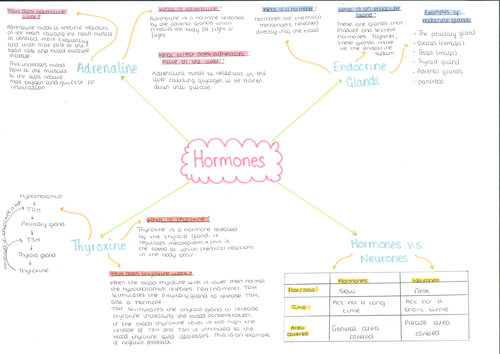 How does adrenaline work?
Adrenaline binds to specific receptors
in the heart causing the heart muscle
to contract more frequently
and with more
heart rate and blood pressure
increase.
This increases blood
flow to the muscles
so the cells receive
more oxygen and glucose for
respiration.
Adrenaline
What is adrenaline?
Adrenaline is a hormone released
by the adrenal glands which
prepares the body for fight or
flight.
What effect does adrenaline
have in the liver?
Adrenaline binds to receptors on the
liver causing glycogen to be broken
down into glucose.
What is a hormone?
Hormones are chemical
messengers released
directly into the blood
What is an endocrine
gland?
These are glands that
produce and secrete
hormones. Together,
these glands make
up the endocrine
system
Endocrine
Glands
Examples of
endocrine glands
• The pituitary gland
• Ovaries (female)
• Testes (male)
• Thyroid gland
• Adrenal glands
• pancreas
Hormones
Hypothalamus
TRH
Pituitary gland
TSH
Thyroid gland
Thyroxine
Thyroxine
What is thyroxine?
Thyroxine is a hormone released
by the thyroid gland, it
regulates metabolism - this is
the speed at which chemical reactions
in the body occur.
How does thyroxine work?
When the blood thyroxine level is lower than normal
the hypothalamus releases TRH (hormone). TRH
stimulates the pituitary gland to release TSH,
also a hormone.
TSH stimulates the thyroid gland to release
thyroxine increasing the blood concentration.
If the blood thyroxine level is too high the
release of TRH and TSH is inhibited so the
blood thyroxine level decreases. This is an example
of negative feedback.
Hormones v.s
Neurones
Hormones Neurones
Fast/Slow? Slow Fast
Time Act for a long time Act for a short time
Area covered General area covered Precise area covered